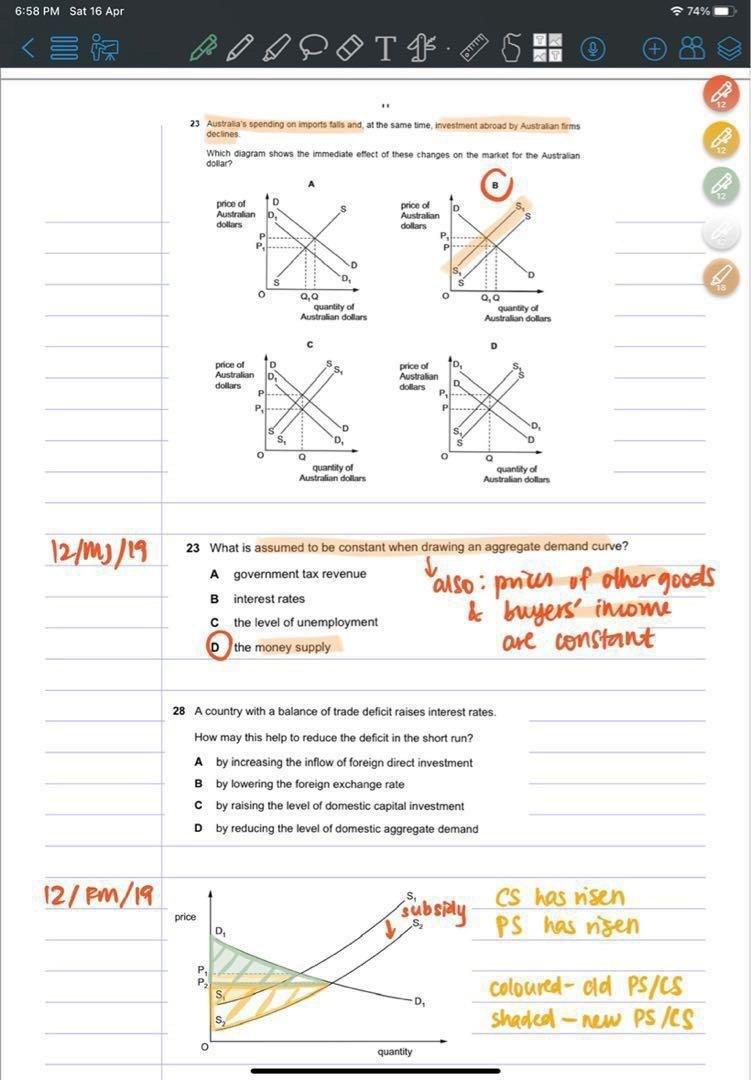 6:58 PM Sat 16 Apr
74%
T
12
12
12
18
23 Australia's spending on imports falls and, at the same time, investment abroad by Australian firms
declines.
Which diagram shows the immediate effect of these changes on the market for the Australian
dollar?
A
price of
Australian
dollars
D
D₁
S
P
P₁
S
D
D₁
O
Q₁Q
quantity of
Australian dollars
B
price of
Australian
dollars
D
S₁
S
P₁
P
S₁
S
D
O
Q₁Q
quantity of
Australian dollars
C
price of
Australian
dollars
D
D₁
S
S₁
P
P₁
S
S₁
D
D₁
O
Q
quantity of
Australian dollars
D
price of
Australian
dollars
D₁
D
S₁
S
P₁
P
S₁
S
D₁
D
O
Q
quantity of
Australian dollars
12/MJ/19
23 What is assumed to be constant when drawing an aggregate demand curve?
A government tax revenue
B interest rates
C the level of unemployment
D the money supply
also: prices of other goods
& buyers' income
are constant
28 A country with a balance of trade deficit raises interest rates.
How may this help to reduce the deficit in the short run?
A by increasing the inflow of foreign direct investment
B by lowering the foreign exchange rate
C by raising the level of domestic capital investment
D by reducing the level of domestic aggregate demand
12/FM/19
price
D₁
S₁
subsidy
S₂
P₁
P₂
S₁
S₂
D₁
O
quantity
CS has risen
PS has risen
coloured - old PS/CS
shaded - new PS/CS